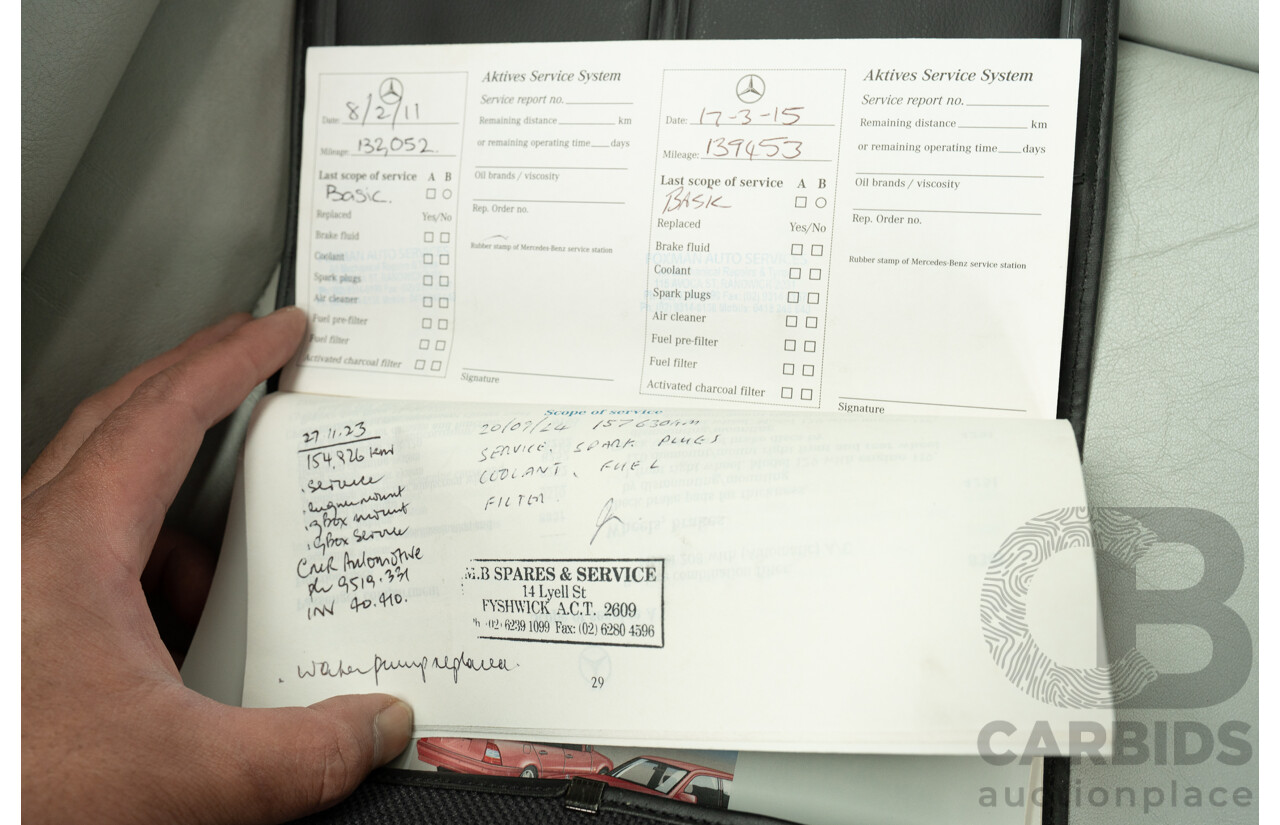 Aktives Service System
Service report no.
Date: 8/2/11
Remaining distance km
Mileage: 132,052
or remaining operating time days
Last scope of service A B
Basic.
Oil brands / viscosity
Replaced Yes/No
Rep. Order no.
Brake fluid
Rubber stamp of Mercedes-Benz service station
Coolant
Spark plugs
Air cleaner
Fuel pre-filter
Fuel filter
Activated charcoal filter
Signature
Aktives Service System
Service report no.
Date: 17-3-15
Remaining distance km
Mileage: 139453
or remaining operating time days
Last scope of service A B
BASIC
Oil brands / viscosity
Replaced Yes/No
Rep. Order no.
Brake fluid
Rubber stamp of Mercedes-Benz service station
Coolant
Spark plugs
Air cleaner
Fuel pre-filter
Fuel filter
Activated charcoal filter
Signature
Scope of service
27.11.23
154,926 km
. service
. engine mount
. gBox mount
. gBox service
Automotive
ph 9519.331
INV 40.410.
. water pump replaced.
20/09/24 157630km
SERVICE, SPARK PLUGS
COOLANT, FUEL
FILTER.
M.B SPARES & SERVICE
14 Lyell St
FYSHWICK A.C.T. 2609
(02) 6239 1099 Fax: (02) 6280 4596
29
CB
CARBIDS
auctionplace